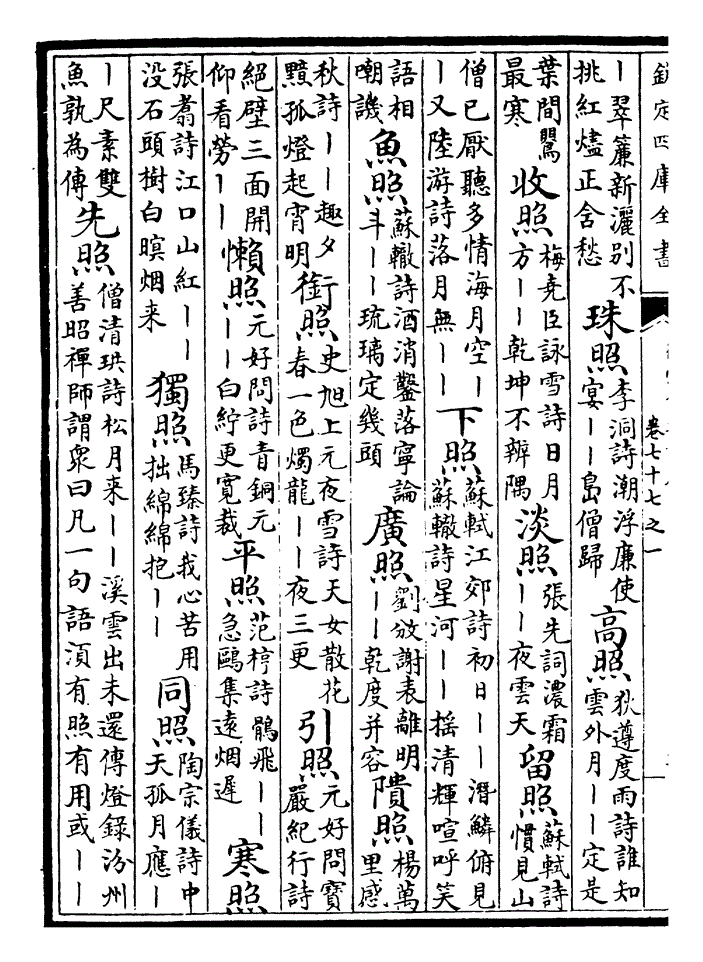 欽定四庫全書
卷七十七之一
丨翠簾新灑別不挑紅燼正含愁 珠照 李洞詩潮浮廉使宴丨丨島僧歸 高照 狄遵度雨詩誰知雲外月丨丨定是
葉間鸎最寒 收照 梅堯臣詠雪詩日月方丨丨乾坤不辨隅 淡照 張先詞濃霜丨丨夜雲天 留照 蘇軾詩慣見山
僧已厭聽多情海月空丨丨又陸游詩落月無丨丨 下照 蘇軾江郊詩初日丨丨潛鱗俯見蘇轍詩星河丨丨搖清輝喧呼笑
語相嘲譏 魚照 蘇轍詩酒消鑿落寧論斗丨丨琉璃定幾頭 廣照 劉攽謝表離明丨丨乾度并容 隤照 楊萬里感
秋詩丨丨趣夕黯孤燈起宵明 銜照 史旭上元夜雪詩天女散花春一色燭龍丨丨夜三更 引照 元好問寶嚴紀行詩
絕壁三面開仰看勞丨丨 懶照 元好問詩青銅元丨丨白紵更寛裁 平照 范梈詩鶻飛丨丨急鷗集遠烟遲 寒照
張翥詩江口山紅丨丨没石頭樹白暝烟来 獨照 馬臻詩我心苦用拙綿綿抱丨丨 同照 陶宗儀詩中天孤月應丨
丨尺素雙魚孰為傳 先照 僧清珙詩松月来丨丨溪雲出未還傳燈錄汾州善昭禪師謂衆曰凡一句語湏有照有用或丨丨